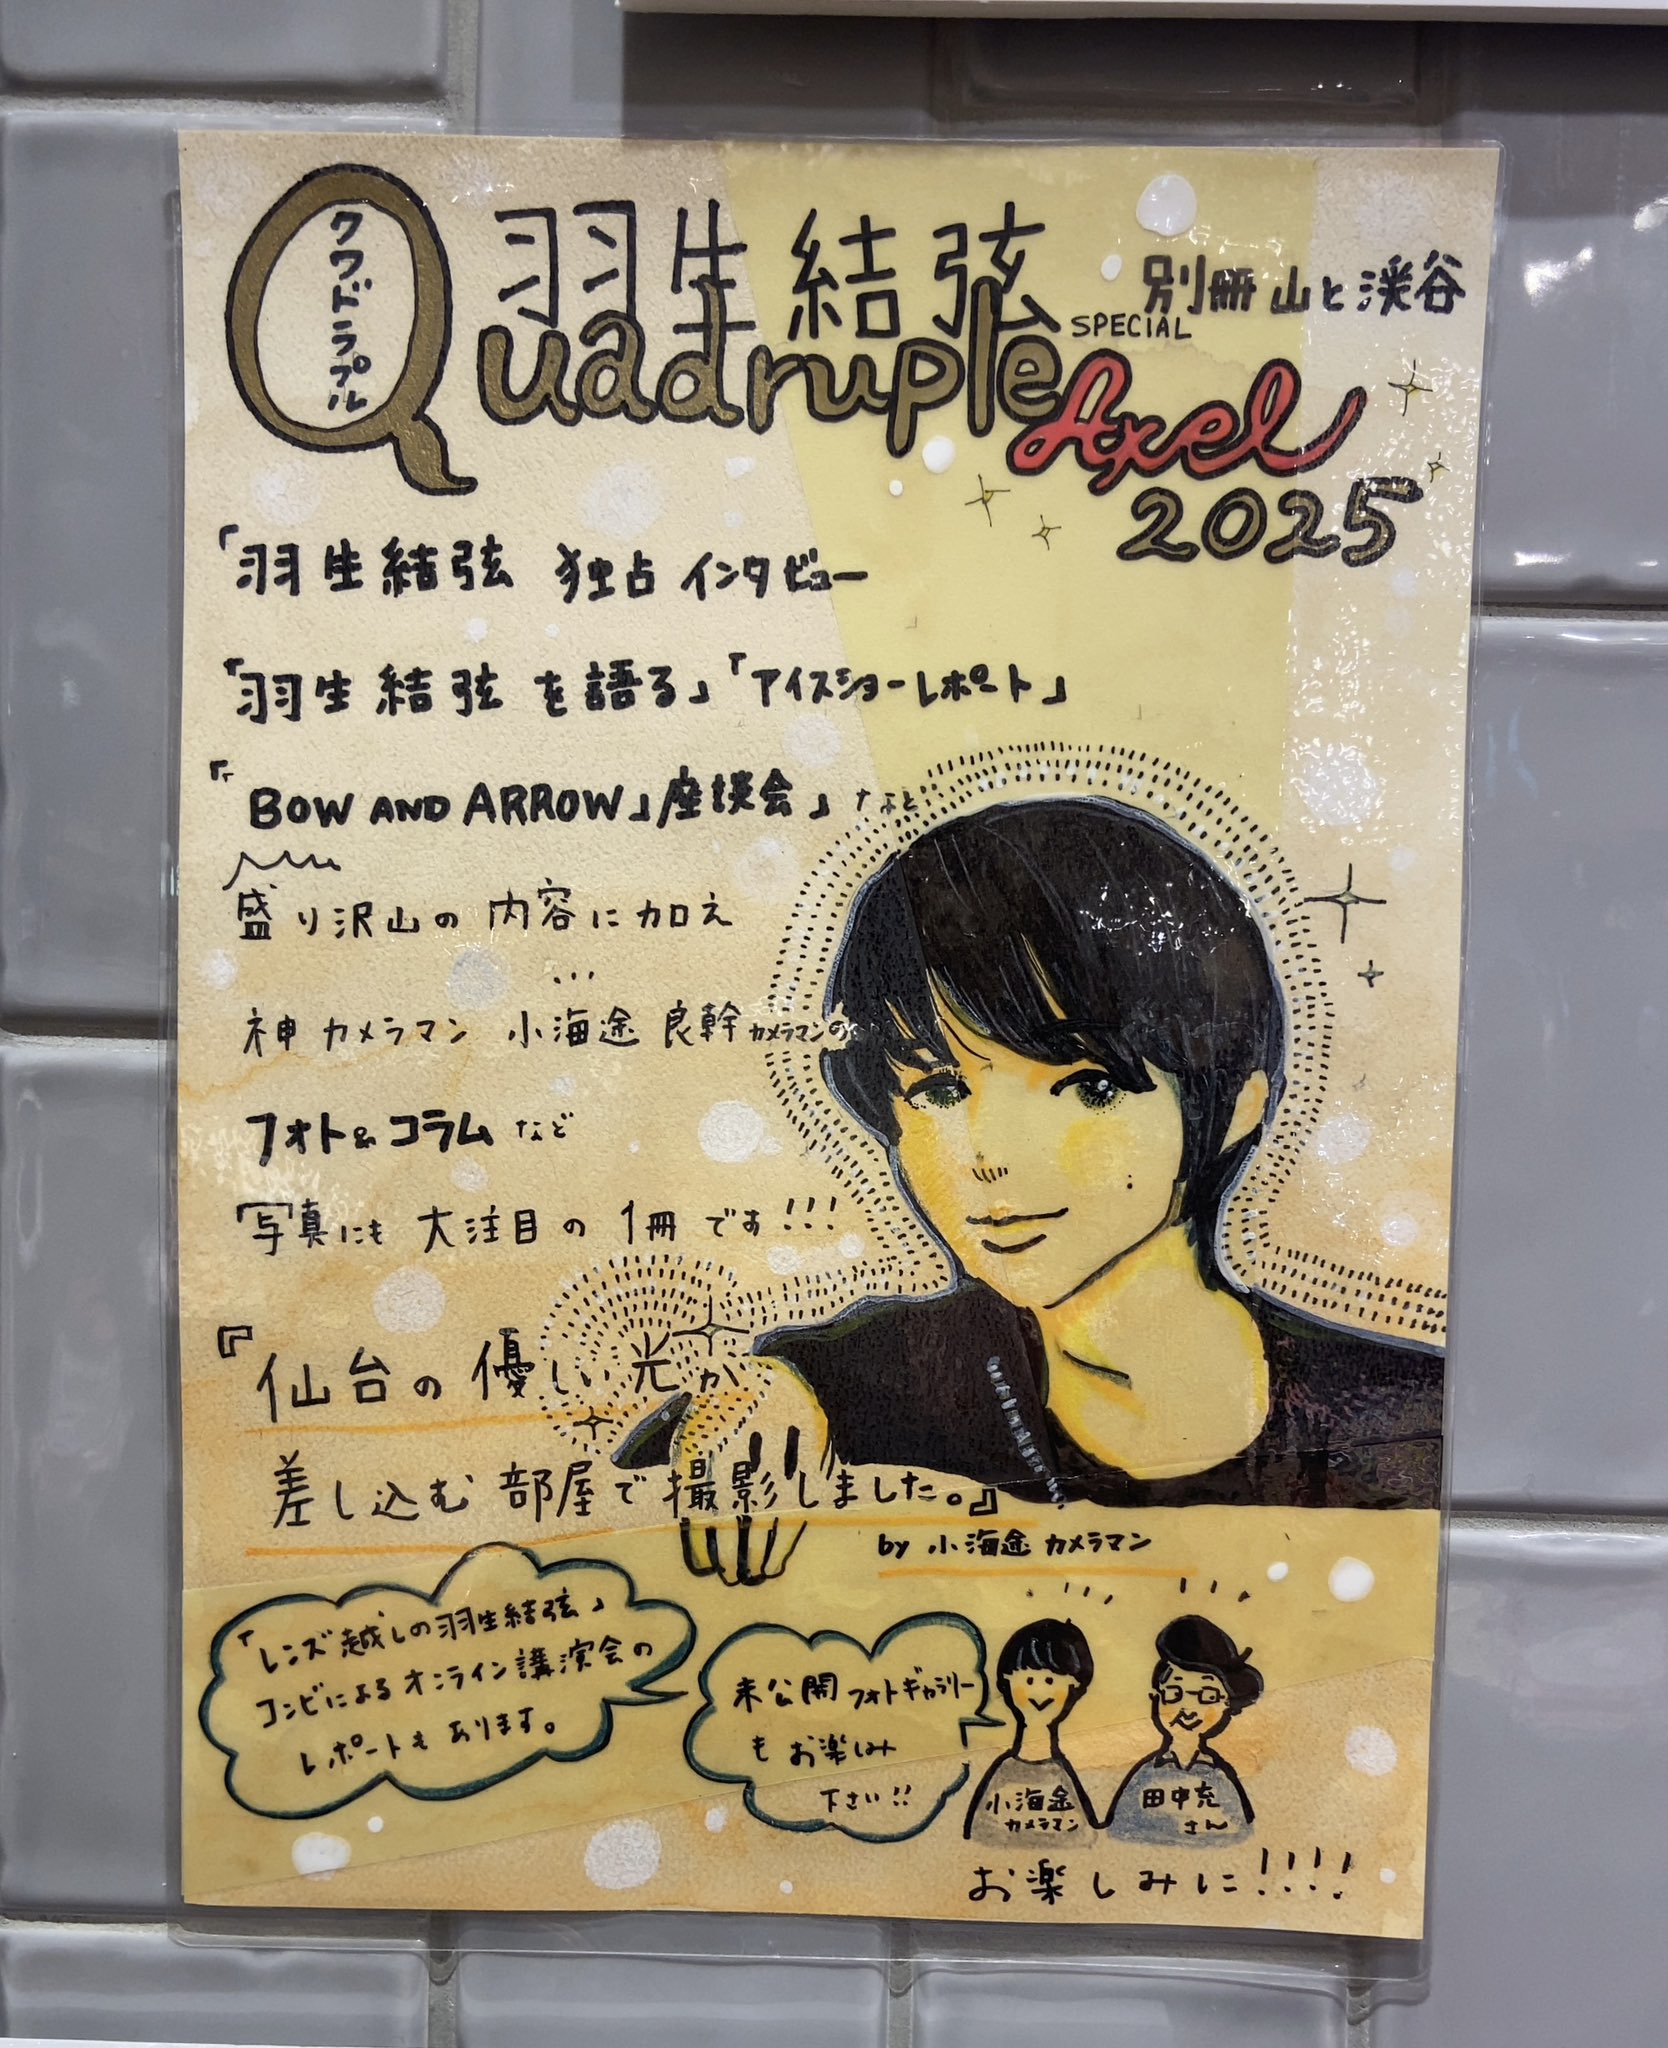 Quadruple
クワドラプル
羽生結弦
別冊 山と渓谷
SPECIAL
Axel
2025
「羽生結弦 独占インタビュー
「羽生結弦を語る」「アイスショーレポート」
「「BOW AND ARROW」座談会」など
盛り沢山の内容に加え
…
神カメラマン 小海途 良幹カメラマンの
フォト&コラムなど
写真にも大注目の1冊です!!!
『仙台の優しい光が
差し込む部屋で撮影しました。』
by 小海途カメラマン
「レンズ越しの羽生結弦」
コンビによるオンライン講演会の
レポートもあります。
未公開フォトギャラリー
もお楽しみ
下さい!!
小海途
カメラマン
田中充
さん
お楽しみに!!!!